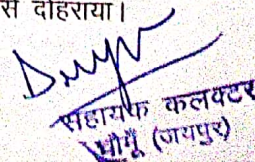 से दोहराया।
सहायक कलक्टर
चौमूँ (जयपुर)